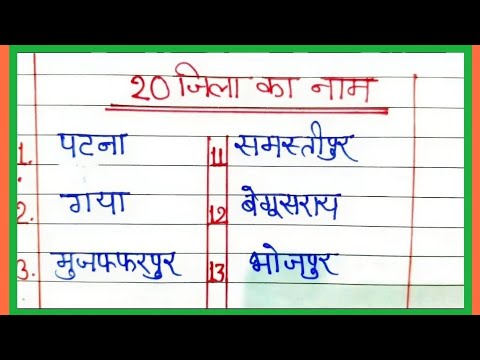 20 जिला का नाम
1. पटना 11 समस्तीपुर
2. गया 12 बेगूसराय
3. मुजफ्फरपुर 13 भोजपुर